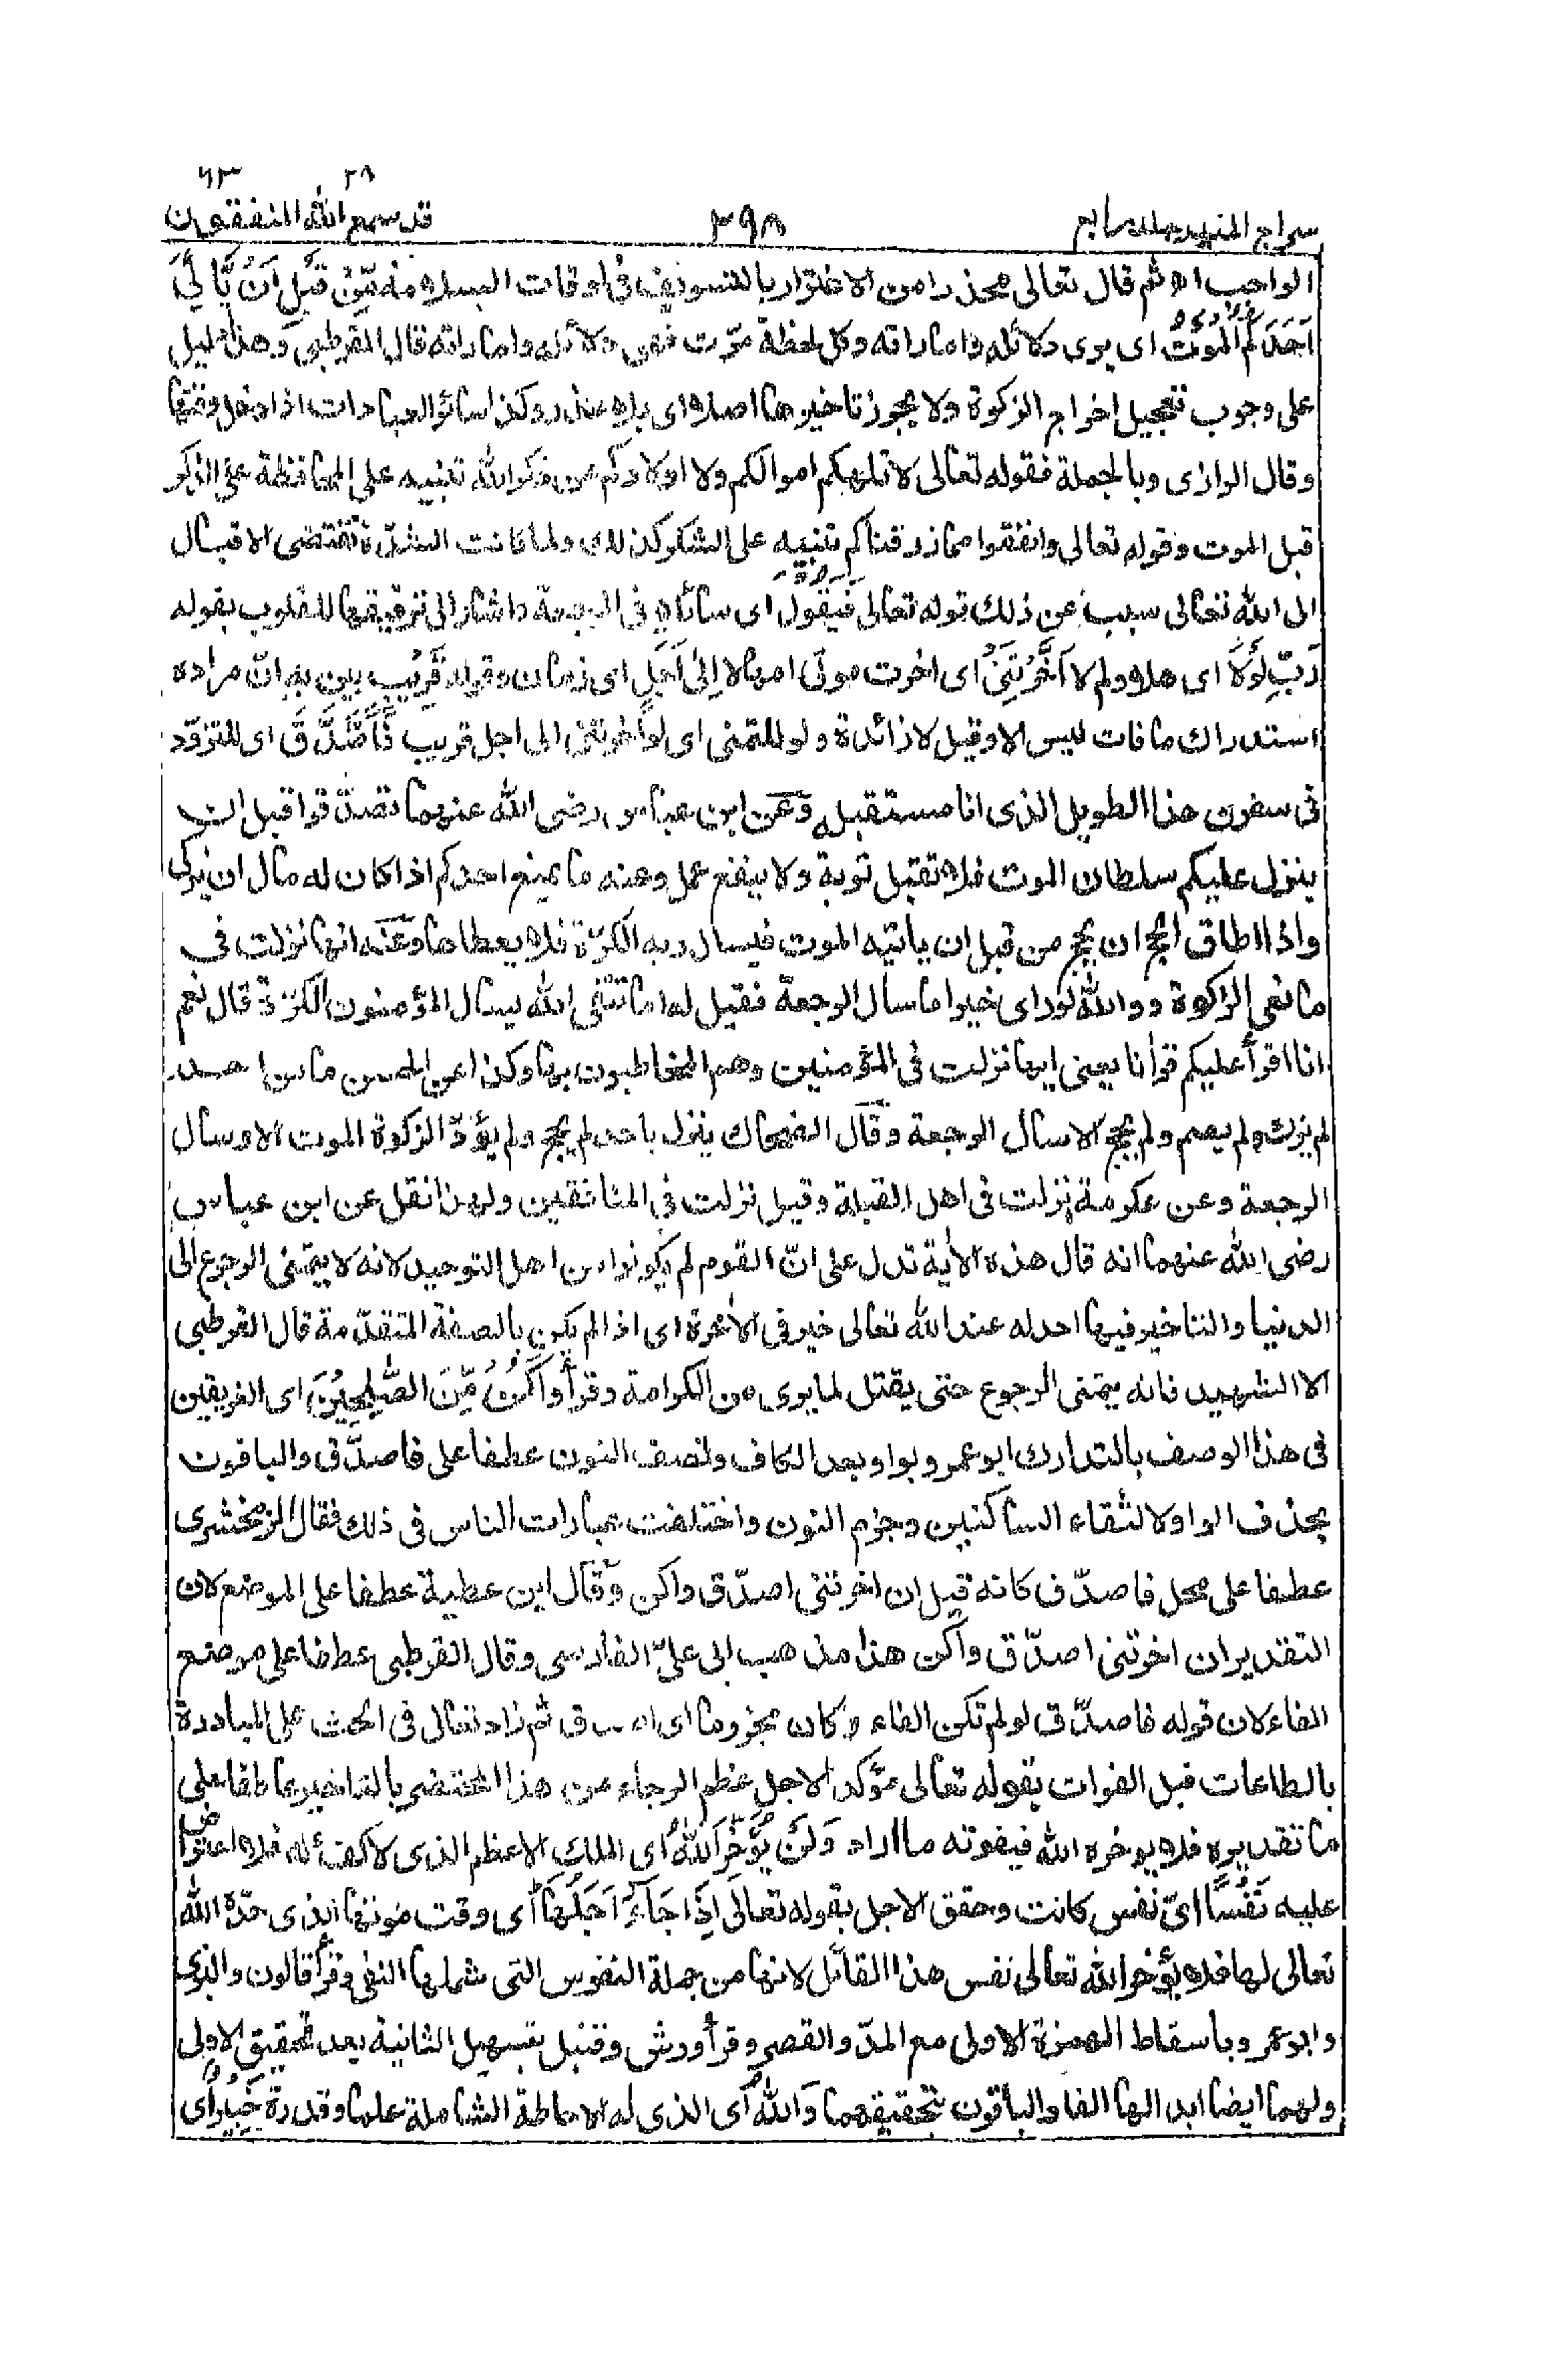 ٢٨ ٦٣
سراج المنير جلد رابع ٣٩٨ قد سمع الله المنفقون
الواجب اه ثم قال تعالى محذرا من الاغترار بالتسويف فى اوقات السلامة مِّنْ قَبْلِ اَنْ يَّاْتِىَ
اَحَدَكُمُ الْمَوْتُ اى يرى دلائله واماراته وكل لحظة مرّت فهى دلائله واماراته قال القرطبى وهذا دليل
على وجوب تعجيل اخراج الزكوة ولا يجوز تاخيرها اصلا اى بلا عذر وكذا سائر العبادات اذا دخل وقتها
وقال الرازى وبالجملة فقوله تعالى لا تلهكم اموالكم ولا اولادكم عن ذكر الله تنبيه على المحافظة على الذكر
قبل الموت وقوله تعالى وانفقوا مما رزقناكم تنبيه على الشكر كذلك ولما كانت الشدّة تقتضى الاقبال
الى الله تعالى سبب عن ذلك قوله تعالى فَيَقُولَ اى سائلا فى الرجعة واشار الى ترقيقها للقلوب بقوله
رَبِّ لَوْلَآ اى هلا ولم لا اَخَّرْتَنِىْ اى اخرت موتى امهالا اِلٰى اَجَلٍ اى زمان وقوله قَرِيْبٍ بين به انّ مراده
استدراك ما فات ليس الا وقيل لا زائدة ولو للتمنى اى لو اخرتنى الى اجل قريب فَاَصَّدَّقَ اى للتزوّد
فى سفرى هذا الطويل الذى انا مستقبله وعن ابن عباس رضى الله عنهما تصدّقوا قبل ان
ينزل عليكم سلطان الموت فلا تقبل توبة ولا ينفع عمل وعنه ما يمنع احدكم اذا كان له مال ان يزكى
واذا اطاق الحج ان يحج من قبل ان ياتيه الموت فيسال ربه الكرّة فلا يعطاها وعنه انها نزلت فى
مانعى الزكوة ووالله لو راى خيرا ما سال الرجعة فقيل له اما تتقى الله يسال المؤمنون الكرّة قال نعم
انا اقرأ عليكم قرأنا يعنى انها نزلت فى المؤمنين وهم المخاطبون بها وكذا عن الحسن ما من احد
لم يزك ولم يصم ولم يحج الا سال الرجعة وقال الضحاك ينزل باحد لم يحج ولم يؤدّ الزكوة الموت الا وسال
الرجعة وعن عكرمة نزلت فى اهل القبلة وقيل نزلت فى المنافقين ولهذا نقل عن ابن عباس
رضى الله عنهما انه قال هذه الأية تدل على انّ القوم لم يكونوا من اهل التوحيد لانه لا يتمنى الرجوع الى
الدنيا والتاخير فيها احد له عند الله تعالى خير فى الأخرة اى اذا لم يكن بالصفة المتقدّمة قال القرطبى
الا الشهيد فانه يتمنى الرجوع حتى يقتل لما يرى من الكرامة وقرأ وَاَكُنْ مِّنَ الصّٰلِحِيْنَ اى العريقين
فى هذا الوصف بالتدارك ابو عمرو بواو بعد الكاف ونصف النون عطفا على فاصدّق والباقون
بحذف الواو لالتقاء الساكنين وجزم النون واختلفت عبارات الناس فى ذلك فقال الزمخشرى
عطفا على محل فاصدّق كانه قيل ان اخرتنى اصدّق واكن وقال ابن عطية عطفا على الموضع لان
التقدير ان اخرتنى اصدّق واكن هذا مذهب ابى علىّ الفارسى وقال القرطبى عطفا على موضع
الفاء لان قوله فاصدّق لو لم تكن الفاء وكان مجزوما اى اصدق ثم زاد تعالى فى الحث على المبادرة
بالطاعات قبل الفوات بقوله تعالى مؤكدا لاجل عظم الرجاء من هذا المحتضر بالتاخير عاطفا على
ما تقديره فلا يوخره الله فيفوته ما اراد وَلَنْ يُّؤَخِّرَ اللّٰهُ اى الملك الاعظم الذى لا كفء له فلا اعتراض
عليه نَفْسًا اىّ نفس كانت وحقق الاجل بقوله تعالى اِذَا جَآءَ اَجَلُهَا اى وقت موتها الذى حدّه الله
تعالى لها فلا يؤخر الله تعالى نفس هذا القائل لانها من جملة النفوس التى شملها النفى وقرأ قالون والبزى
وابو عمرو باسقاط الهمزة الاولى مع المدّ والقصر وقرأ ورش وقنبل بتسهيل الثانية بعد تحقيق الاولى
ولهما ايضا ابدالها الفا والباقون بتحقيقهما وَاللّٰهُ اى الذى له الاحاطة الشاملة علما وقدرة خَبِيْرٌ اى